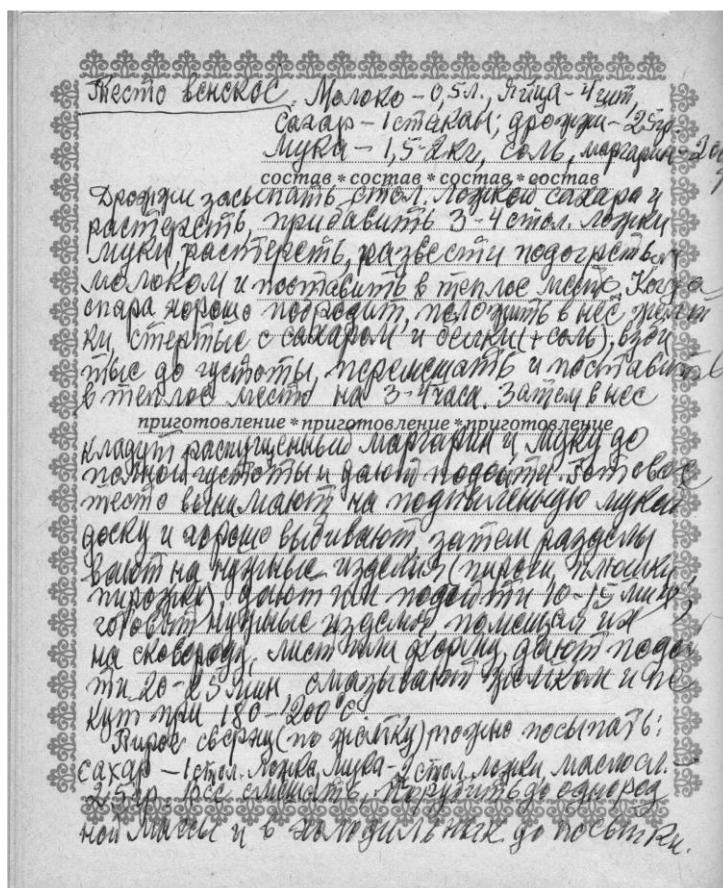 Тесто венское. Молоко – 0,5 л., Яйца – 4 шт,
сахар – 1 стакан; дрожжи – 25 гр.
Мука – 1,5-2 кг, соль, маргарин – 200
состав * состав * состав * состав
Дрожжи засыпать стол. ложкой сахара и
растереть, прибавить 3-4 стол. ложки
муки, растереть, развести подогретым
молоком и поставить в теплое место. Когда
опара хорошо побродит, положить в неё желт
ки, стертые с сахаром и белки (+соль), взби
тые до густоты, перемешать и поставить
в теплое место на 3-4 часа. Затем в нее
приготовление * приготовление * приготовление
кладут распущенный маргарин и муку до
полной густоты и дают подойти. Готовое
тесто вынимают на подпыленную мукой
доску и хорошо выбивают, затем разделы
вают на нужные изделия (пироги, плюшки,
пирожки), дают им подойти 10-15 мин,
готовят нужные изделия, помещая их
на сковороду, лист или форму, дают подой
ти 20-25 мин, смазывают желтком и пе
кут при 180-200°С.
Пирог сверху (по желтку) можно посыпать:
сахар – 1 стол. ложка, мука – 2 стол. ложки, масло сл. –
25 гр. Все смешать, порубить до однород
ной массы и в холодильник до посыпки.